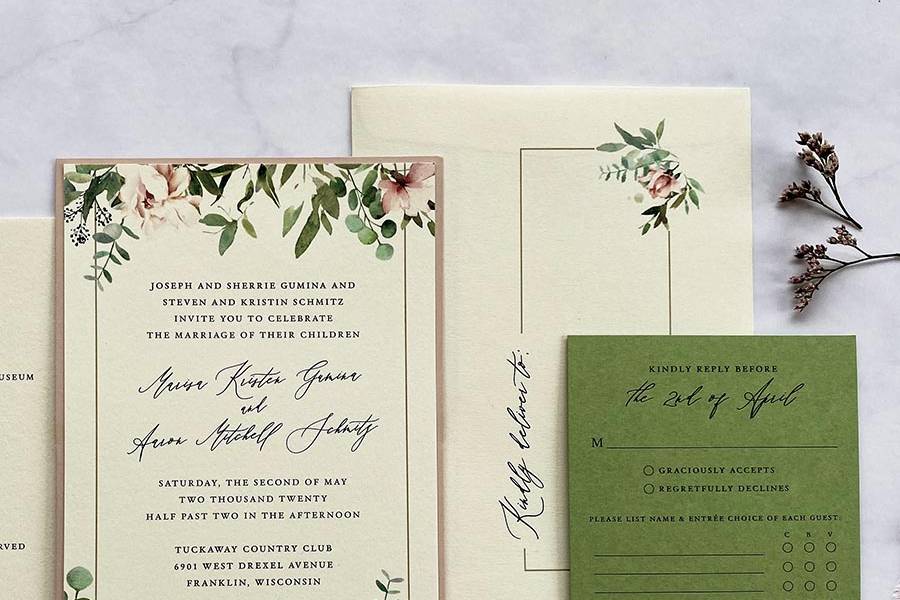 USEUM
RVED
JOSEPH AND SHERRIE GUMINA AND
STEVEN AND KRISTIN SCHMITZ
INVITE YOU TO CELEBRATE
THE MARRIAGE OF THEIR CHILDREN
Marisa Kirsten Gumina
and
Aaron Mitchell Schmitz
SATURDAY, THE SECOND OF MAY
TWO THOUSAND TWENTY
HALF PAST TWO IN THE AFTERNOON
TUCKAWAY COUNTRY CLUB
6901 WEST DREXEL AVENUE
FRANKLIN, WISCONSIN
Kindly deliver to:
KINDLY REPLY BEFORE
the 2nd of April
M
GRACIOUSLY ACCEPTS
REGRETFULLY DECLINES
PLEASE LIST NAME & ENTRÉE CHOICE OF EACH GUEST:
C B V